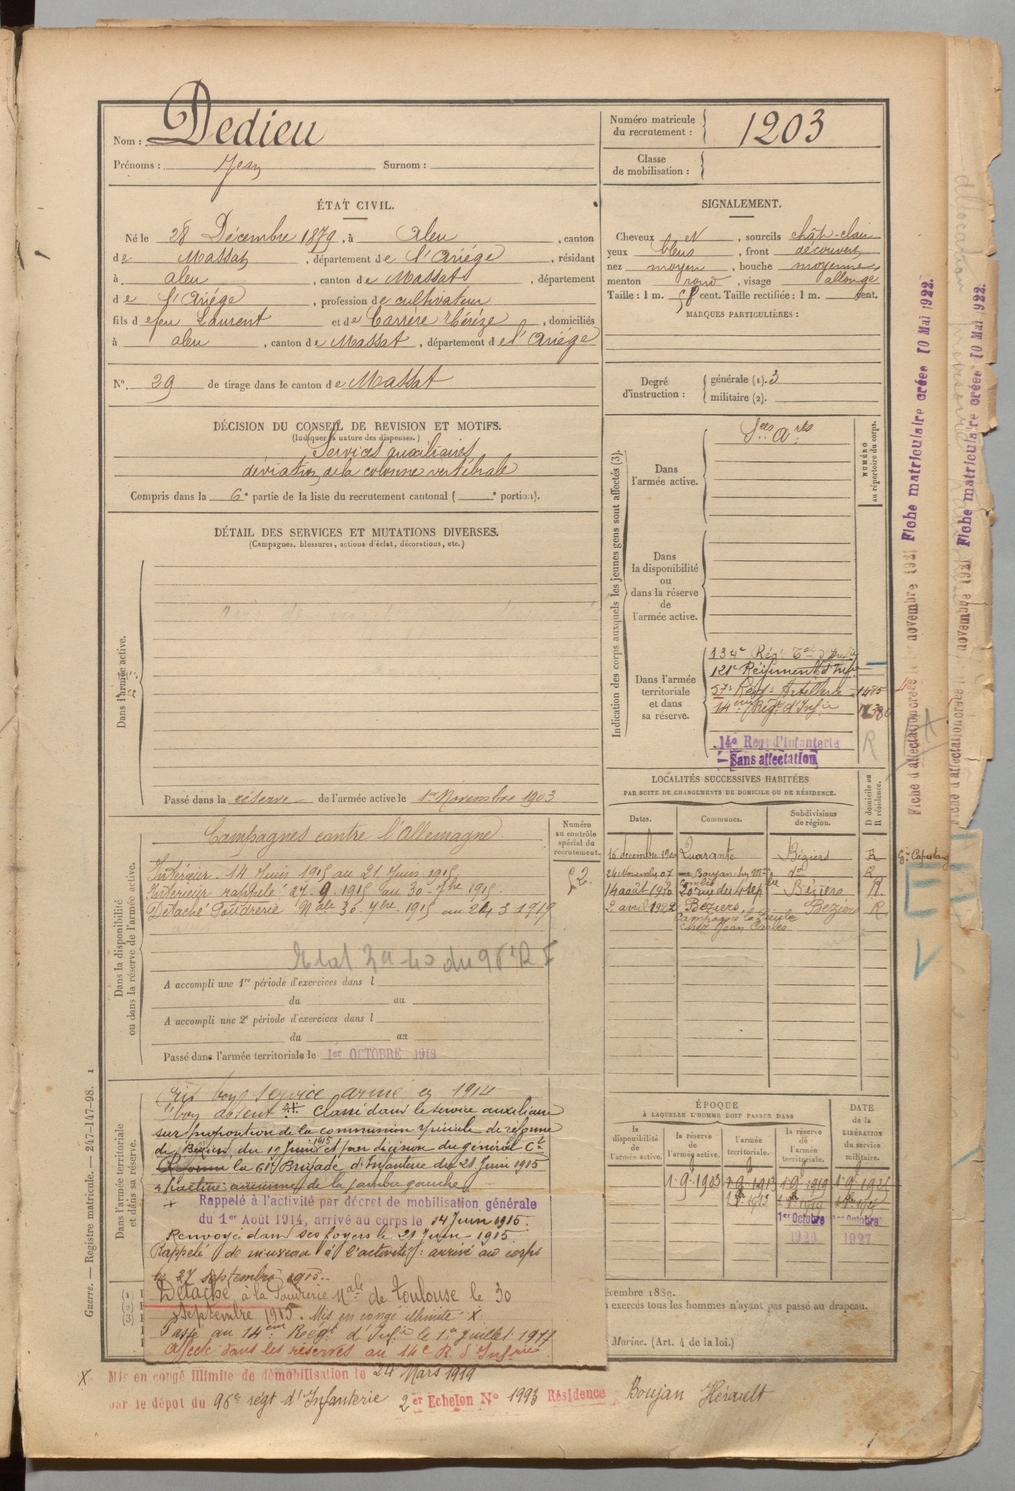 Nom : Dedieu
Prénoms : Jean Surnom :
Numéro matricule du recrutement : 1203
Classe de mobilisation :
ÉTAT CIVIL.
Né le 28 Décembre 1879, à Aleu, canton
de Massat, département de l'Ariége, résidant
à aleu, canton de Massat, département
de l'Ariége, profession de cultivateur
fils de feu Laurent et de Carrère Thérèze, domiciliés
à aleu, canton de Massat, département de l'Ariége
N° 29 de tirage dans le canton de Massat
SIGNALEMENT.
Cheveux , sourcils chât-clair
yeux bleus, front découvert
nez moyen, bouche moyenne
menton rond, visage allongé
Taille : 1 m. 58 cent. Taille rectifiée : 1 m. cent.
MARQUES PARTICULIÈRES :
Degré d'instruction : générale (1). 3
militaire (2).
DÉCISION DU CONSEIL DE REVISION ET MOTIFS.
(Indiquer la nature des dispenses.)
Services auxiliaires
déviation de la colonne vertébrale
Compris dans la 6e partie de la liste du recrutement cantonal ( e portion).
DÉTAIL DES SERVICES ET MUTATIONS DIVERSES.
(Campagnes, blessures, actions d'éclat, décorations, etc.)
Dans l'armée active.
Passé dans la réserve de l'armée active le 1er Novembre 1903
Indication des corps auxquels les jeunes gens sont affectés (3).
NUMÉRO au répertoire du corps.
Dans l'armée active.
Dans la disponibilité ou dans la réserve de l'armée active.
Dans l'armée territoriale et dans sa réserve.
134e Rég.
121e Régiment d'Inf.
57e Rég. Artillerie
14eme Rég. d'Infie
14e Regt d'Infanterie
Sans affectation
R
LOCALITÉS SUCCESSIVES HABITÉES
PAR SUITE DE CHANGEMENTS DE DOMICILE OU DE RÉSIDENCE.
Dates. Communes. Subdivisions de région. D domicile ou R résidence.
Quarante Béziers R
Boujan
14 août Béziers R
2 avril 1922 Béziers Béziers R
chez Jean
Dans la disponibilité ou dans la réserve de l'armée active.
Numéro au contrôle spécial du recrutement.
Campagnes contre l'Allemagne
Intérieur 14 Juin 1915 au 21 Juin 1915
Intérieur rappelé 27. 9. 1915 au 30. 7bre 1915.
Détaché Poudrerie Nale 30. 7bre. 1915 au 24 3 1919
A accompli une 1re période d'exercices dans l
du au
A accompli une 2e période d'exercices dans l
du au
Passé dans l'armée territoriale le 1er OCTOBRE 1913
Dans l'armée territoriale et dans sa réserve.
service armé 1914
Classé dans le service auxiliaire
sur proposition de la commission spéciale de réforme
de Béziers, du 19 Juin 1915 et par décision du général Ct
la 61e Brigade d'Infanterie du 21 Juin 1915
fracture ancienne de la jambe gauche
Rappelé à l'activité par décret de mobilisation générale
du 1er Août 1914, arrivé au corps le 14 Juin 1915.
Renvoyé dans ses foyers le 21 Juin 1915
Rappelé de nouveau à l'activité : arrivé au corps
le 27 septembre 1915.
Détaché, à la Poudrerie Nale de Toulouse le 30
Septembre 1915. Mis en congé illimité X
Passé au 14eme Régt d'Infie le 1er Juillet 1917
Affecté dans les réserves au 14e R d'Infie
X Mis en congé illimité de démobilisation le 24 Mars 1919
par le dépôt du 96e régt d'Infanterie 2er Echelon N° 1993 Résidence Boujan Hérault
ÉPOQUE
À LAQUELLE L'HOMME DOIT PASSER DANS
la disponibilité de l'armée active. la réserve de l'armée active. l'armée territoriale. la réserve de l'armée territoriale.
DATE de la LIBÉRATION du service militaire.
1.9.1903 1.9.1913 1.9.1919
1er Octobre
1927
exercés tous les hommes n'ayant pas passé au drapeau.
Marine. (Art. 4 de la loi.)
Guerre. — Registre matricule. — 247-147-98.
Fiche matriculaire créée 10 Mai 1922.
Fiche matriculaire créée 10 Mai 1922.